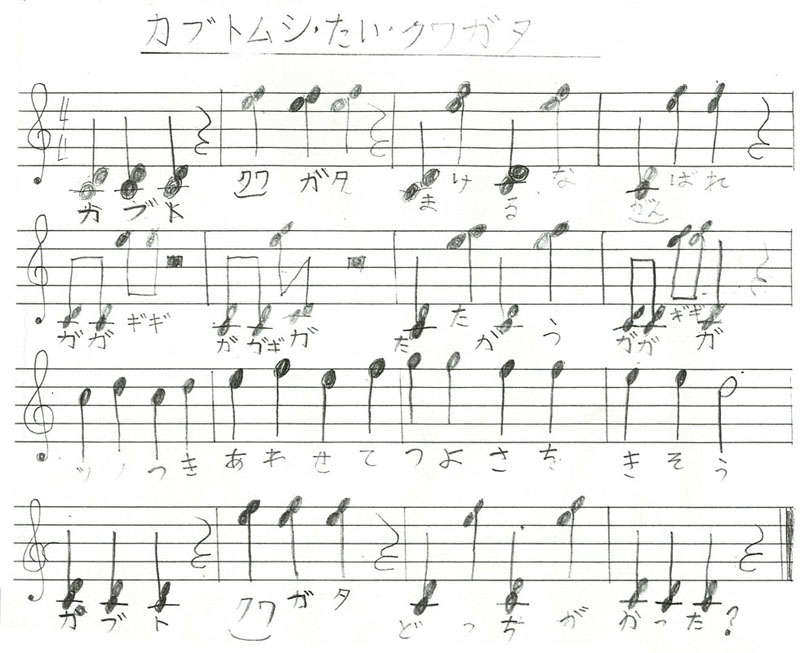 カブトムシ・たい・クワガタ
カブト クワガタ まけるな がんばれ
ガガギギ ガガギガ たたかう ガガギギガ
ツノつき あわせて つよさを きそう
カブト クワガタ どっちが かった?